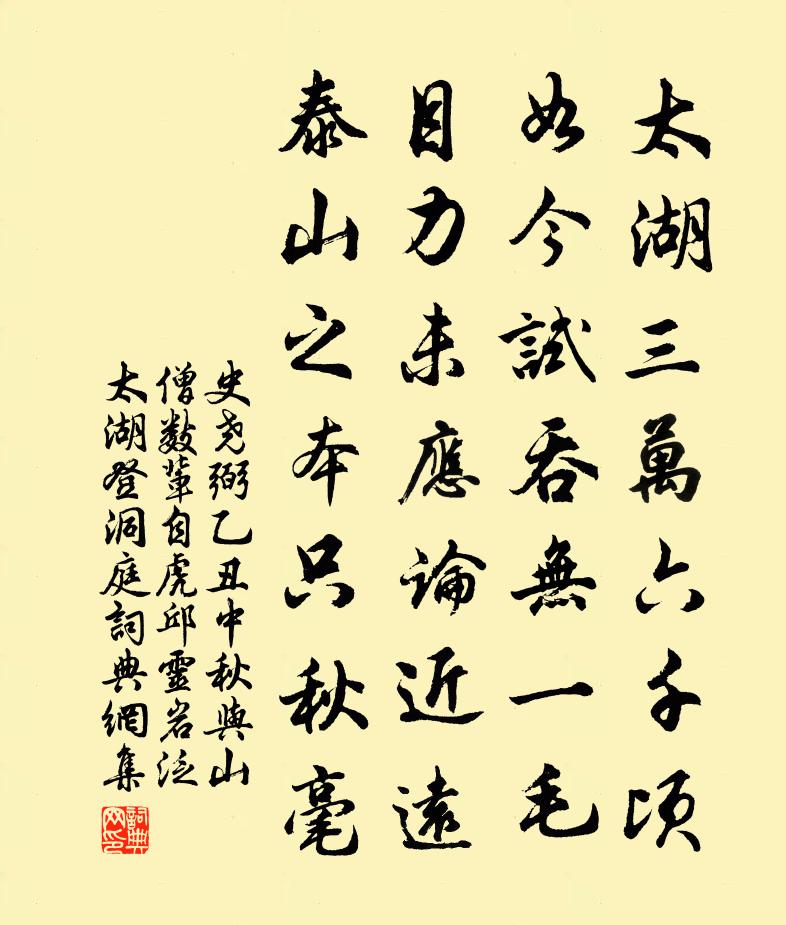 太湖三萬六千頃
如今試吞無一毛
目力未應論近遠
泰山之本只秋毫
史堯弼乙丑中秋與山
僧數輩自虎邱靈岩泛
太湖登洞庭詞典網集
詞典網印